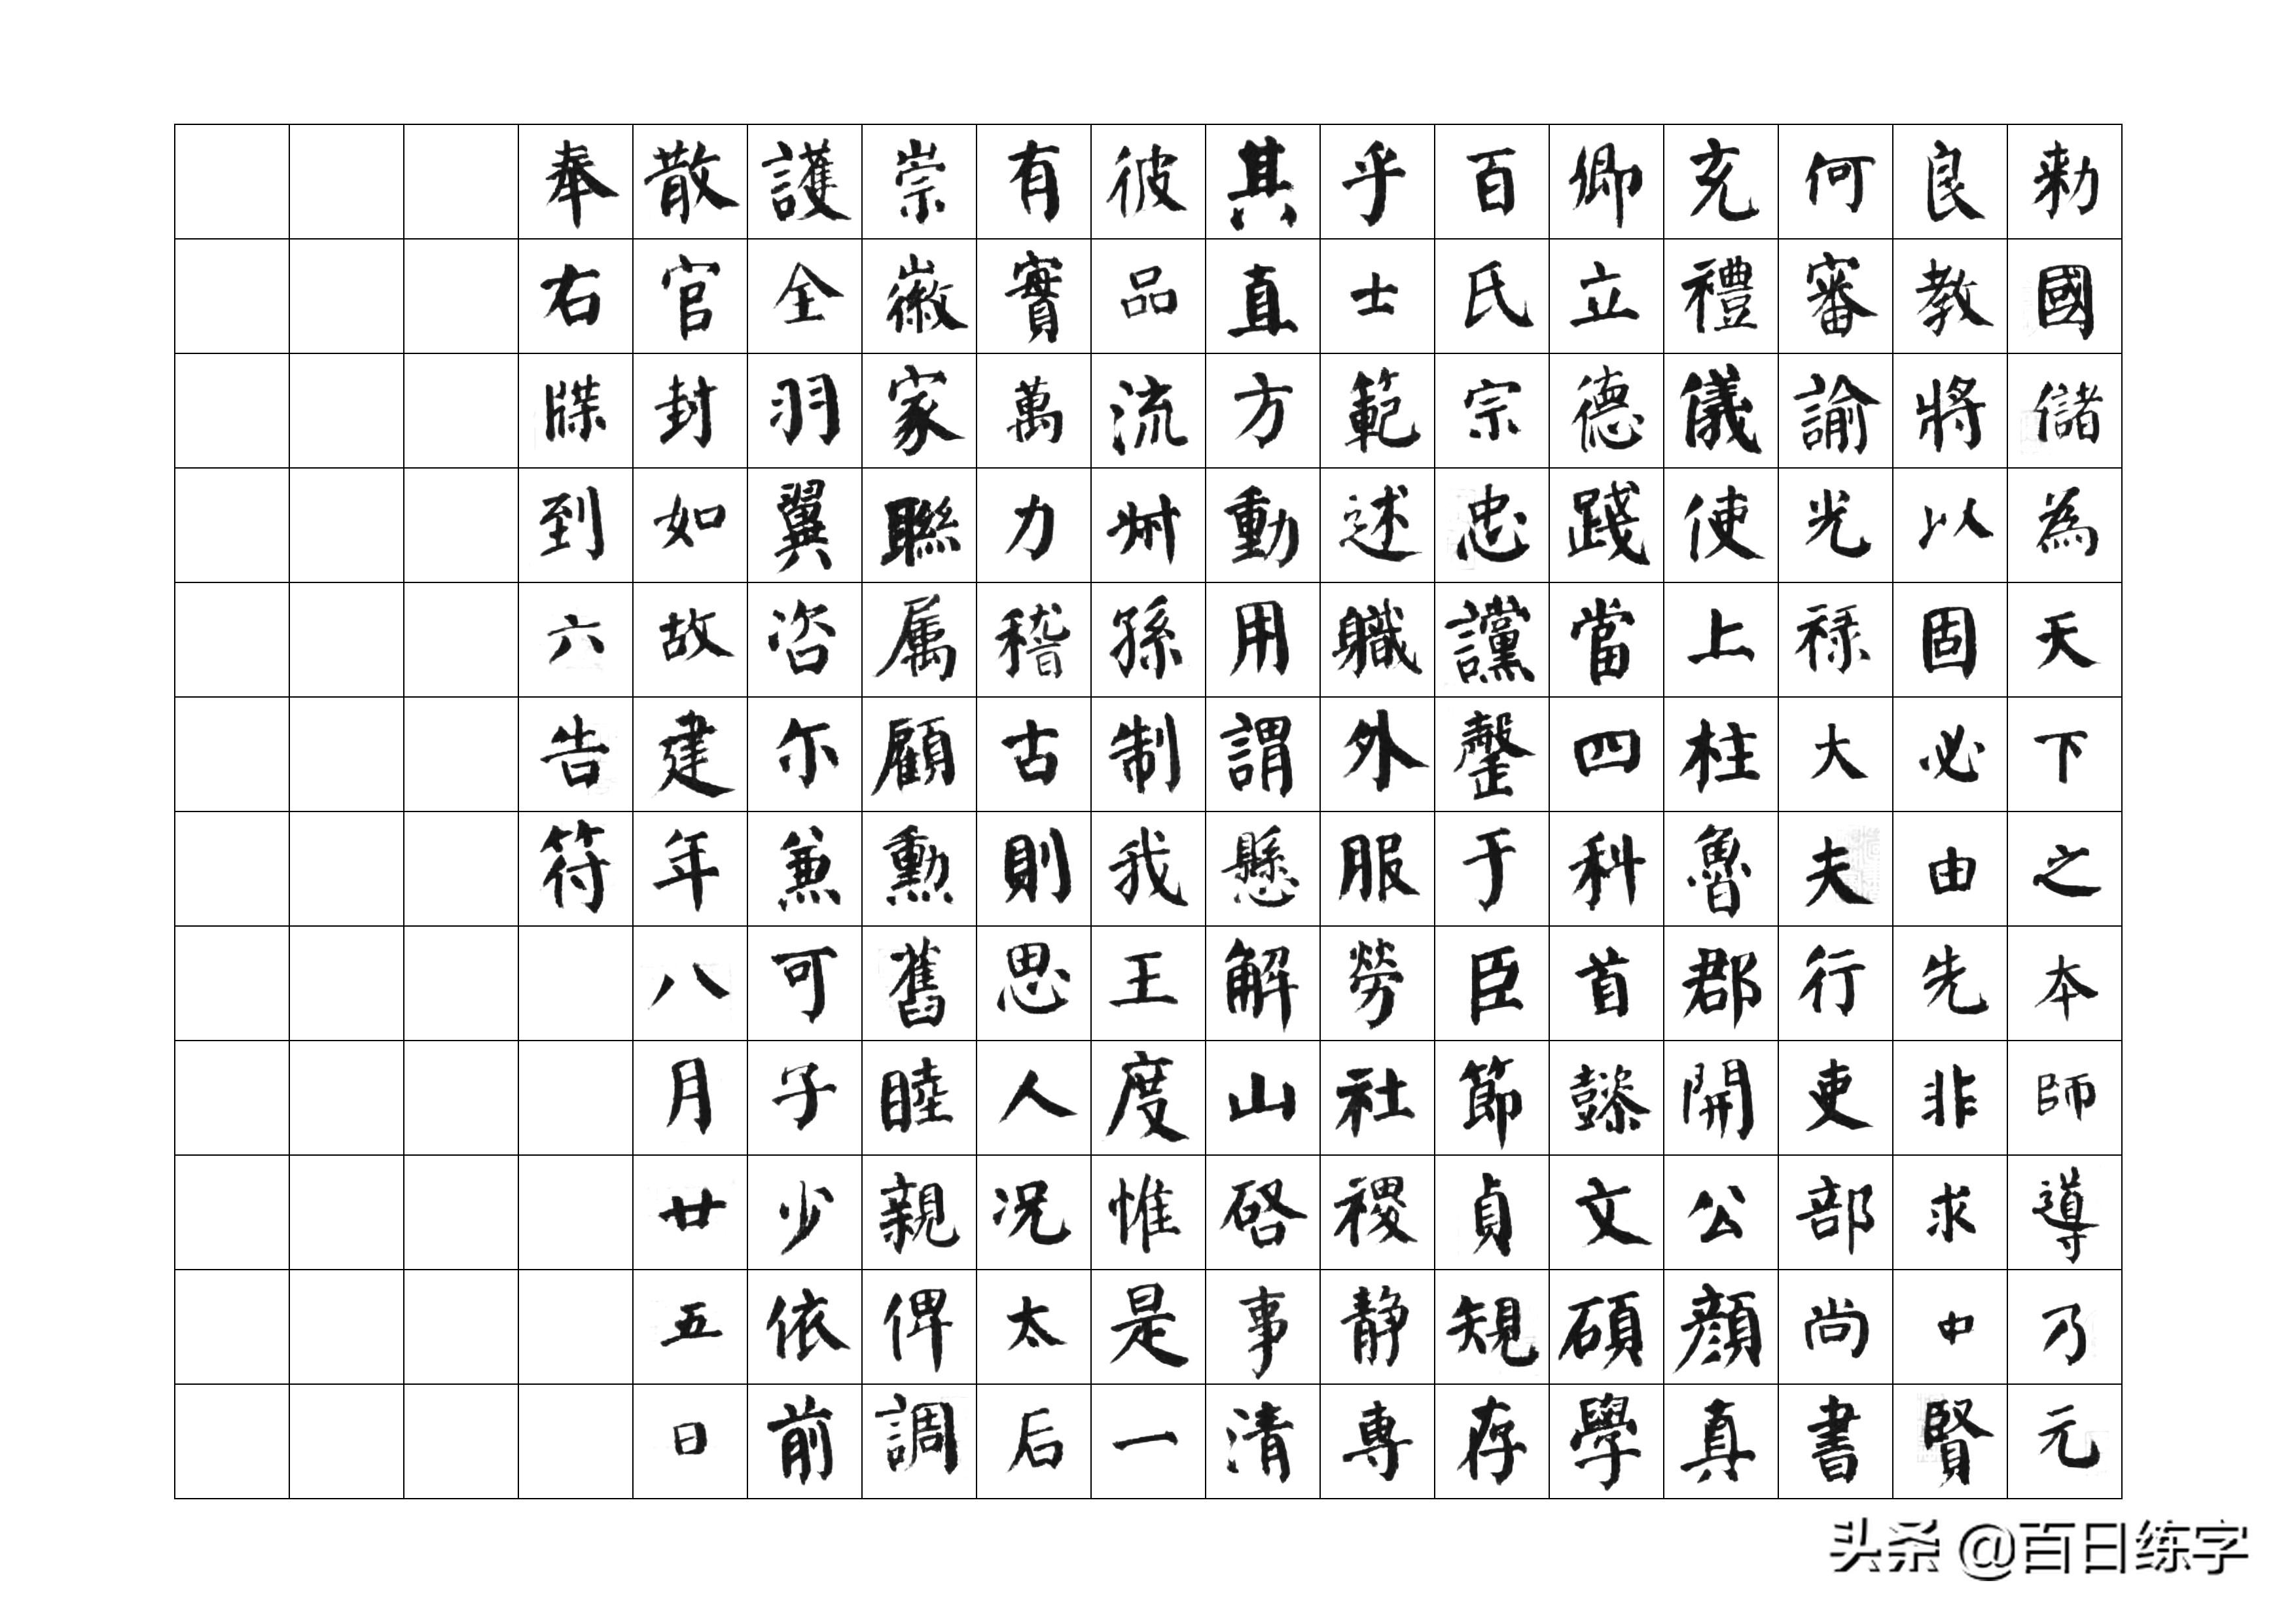 勑國儲為天下之本師導乃元
良教將以固必由先非求中賢
何審諭光禄大夫行吏部尚書
充禮儀使上柱魯郡開公顔真
卿立德踐當四科首懿文碩學
百氏宗忠讜罄于臣節貞規存
乎士範述職外服勞社稷静專
其直方動用謂懸解山啓事清
彼品流叙孫制我王度惟是一
有實萬力稽古則思人况太后
崇徽家聯属顧勲舊睦親俾調
護全羽翼咨尓兼可子少依前
散官封如故建年八月廿五日
奉右牒到六告符
头条 @百日练字